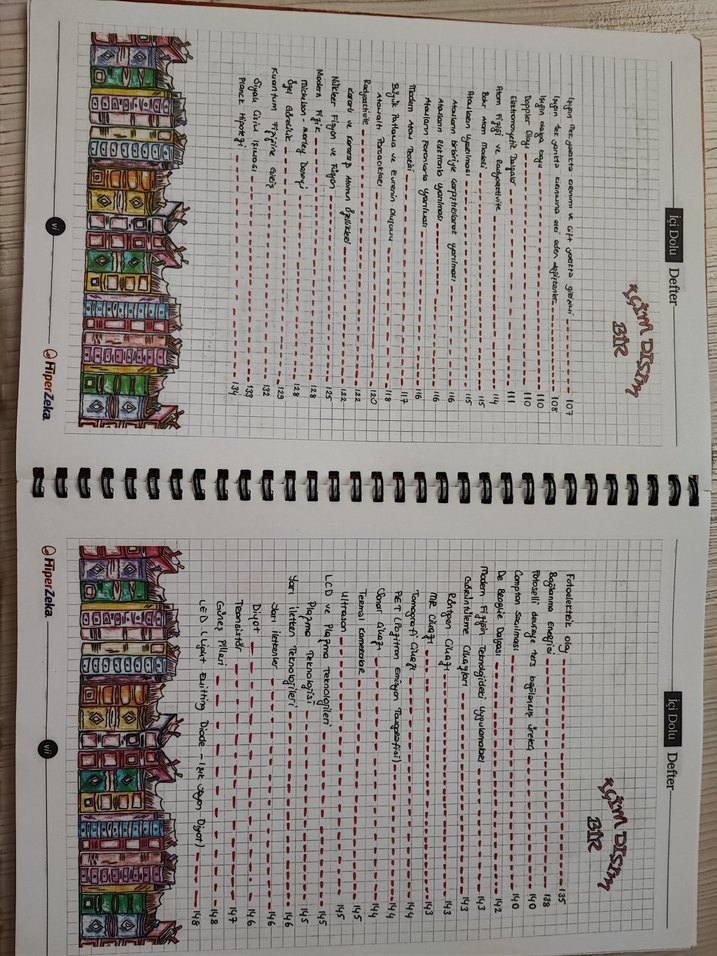 İçi Dolu Defter
İÇİM DIŞIM
BİR
Işığın tek yarıkta kırınımı ve çift yarıkta girişimi 107
Işığın tek yarıkta kırınımına etki eden değişkenler 108
Işığın dalga doğası 110
Doppler Olayı 110
Elektromanyetik Dalgalar 111
Atom Fiziği ve Radyoaktivite 114
Bohr Atom Modeli 115
Atomların Uyarılması 115
Atomların birbiriyle çarpıştırılarak uyarılması 116
Atomların Elektronla uyarılması 116
Atomların Fotonlarla uyarılması 116
Modern Atom Teorisi 117
Büyük Patlama ve Evrenin Oluşumu 118
Atomaltı Parçacıklar 120
Radyoaktivite 122
Kararlı ve Kararsız Atomun Özellikleri 122
Nükleer Fisyon ve Füzyon 125
Modern Fizik 128
Michelson - Morley Deneyi 128
Özel Görelilik 129
Kuantum Fiziğine Giriş 132
Siyah Cisim Işıması 133
Planck Hipotezi 134
vi
HiperZeka
İçi Dolu Defter
İÇİM DIŞIM
BİR
Fotoelektrik olay 135
Bağlanma Enerjisi 138
Fotoselli devreye ters bağlanmış üreteç 140
Compton Saçılması 140
De Broglie Dalgası 142
Modern Fiziğin Teknolojideki Uygulamaları 143
Görüntüleme Cihazları 143
Röntgen Cihazı 143
MR Cihazı 143
Tomografi Cihazı 144
PET (Pozitron Emisyon Tomografisi) 144
Sonar Cihazı 144
Termal Kameralar 145
Ultrason 145
LCD ve Plazma Teknolojileri 145
Plazma Teknolojisi 145
Yarı İletken Teknolojileri 146
Yarı iletkenler 146
Diyot 146
Transistör 147
Güneş Pilleri 148
LED (Light Emitting Diode - Işık Yayan Diyot) 148
vii
HiperZeka